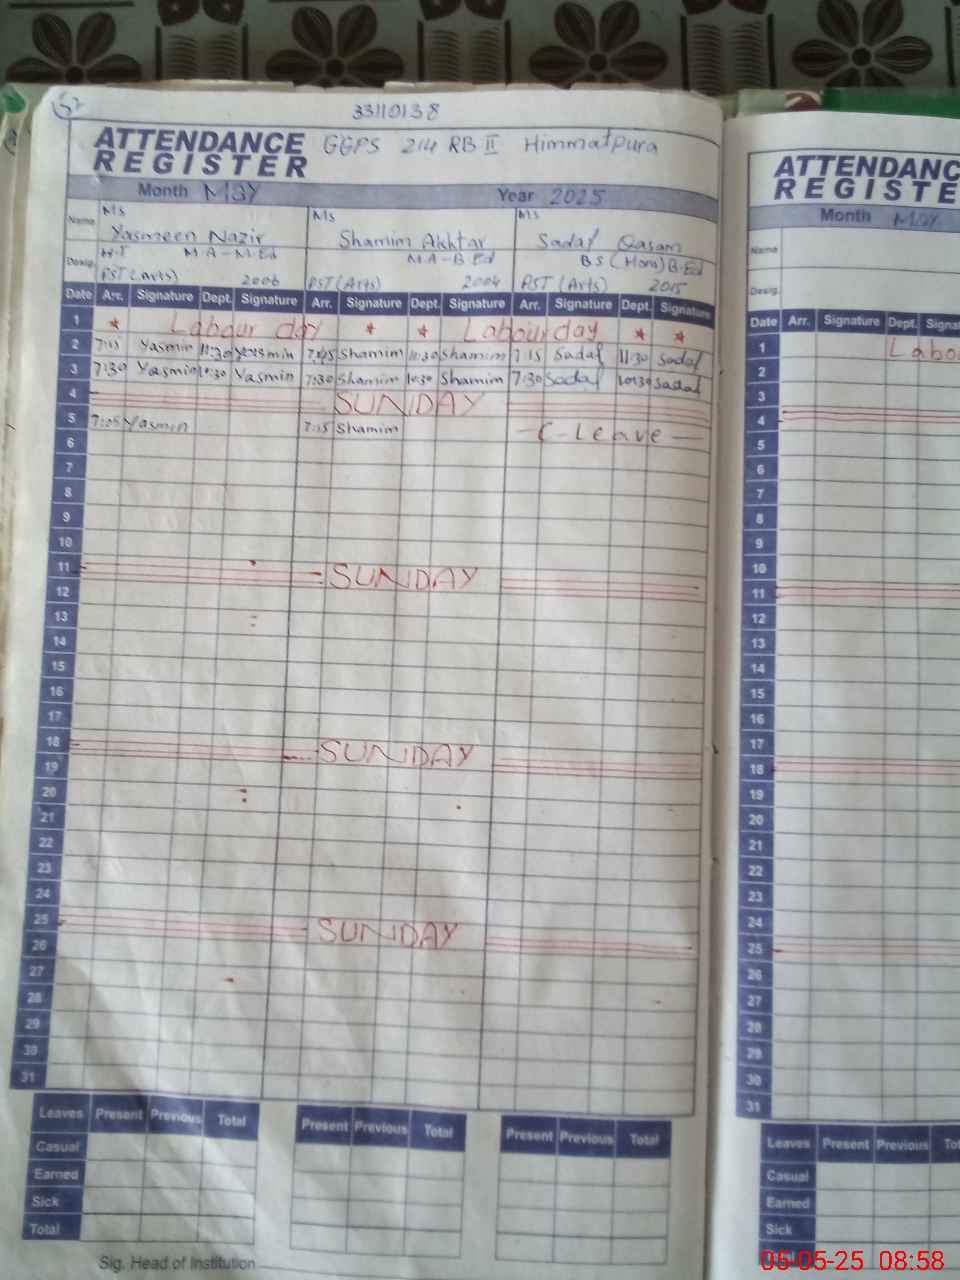 52
33110138
ATTENDANCE REGISTER GGPS 214 RB II Himmatpura
Month May Year 2025
Name Ms Yasmeen Nazir Ms Shamim Akhtar Ms Sadaf Qasam
Desig. H.T M.A-M.Ed M.A-B.Ed BS (Hons) B.Ed
PST (Arts) 2006 PST (Arts) 2004 PST (Arts) 2015
Date Arr. Signature Dept. Signature Arr. Signature Dept. Signature Arr. Signature Dept. Signature
1 * Labour day * * Labour day * *
2 7:15 Yasmin 11:30 Yasmin 7:15 Shamim 11:30 Shamim 7:15 Sadaf 11:30 Sadaf
3 7:30 Yasmin 10:30 Yasmin 7:30 Shamim 10:30 Shamim 7:30 Sadaf 10:30 Sadaf
4 SUNDAY
5 7:05 Yasmin 7:15 Shamim -C-Leave-
6
7
8
9
10
11 SUNDAY
12
13
14
15
16
17
18 SUNDAY
19
20
21
22
23
24
25 SUNDAY
26
27
28
29
30
31
Leaves Present Previous Total Present Previous Total Present Previous Total
Casual
Earned
Sick
Total
Sig. Head of Institution
ATTENDANC
REGISTE
Month May
Name
Desig.
Date Arr. Signature Dept. Signa
1 Labo
2
3
4
5
6
7
8
9
10
11
12
13
14
15
16
17
18
19
20
21
22
23
24
25
26
27
28
29
30
31
Leaves Present Previous Tot
Casual
Earned
Sick
05-05-25 08:58